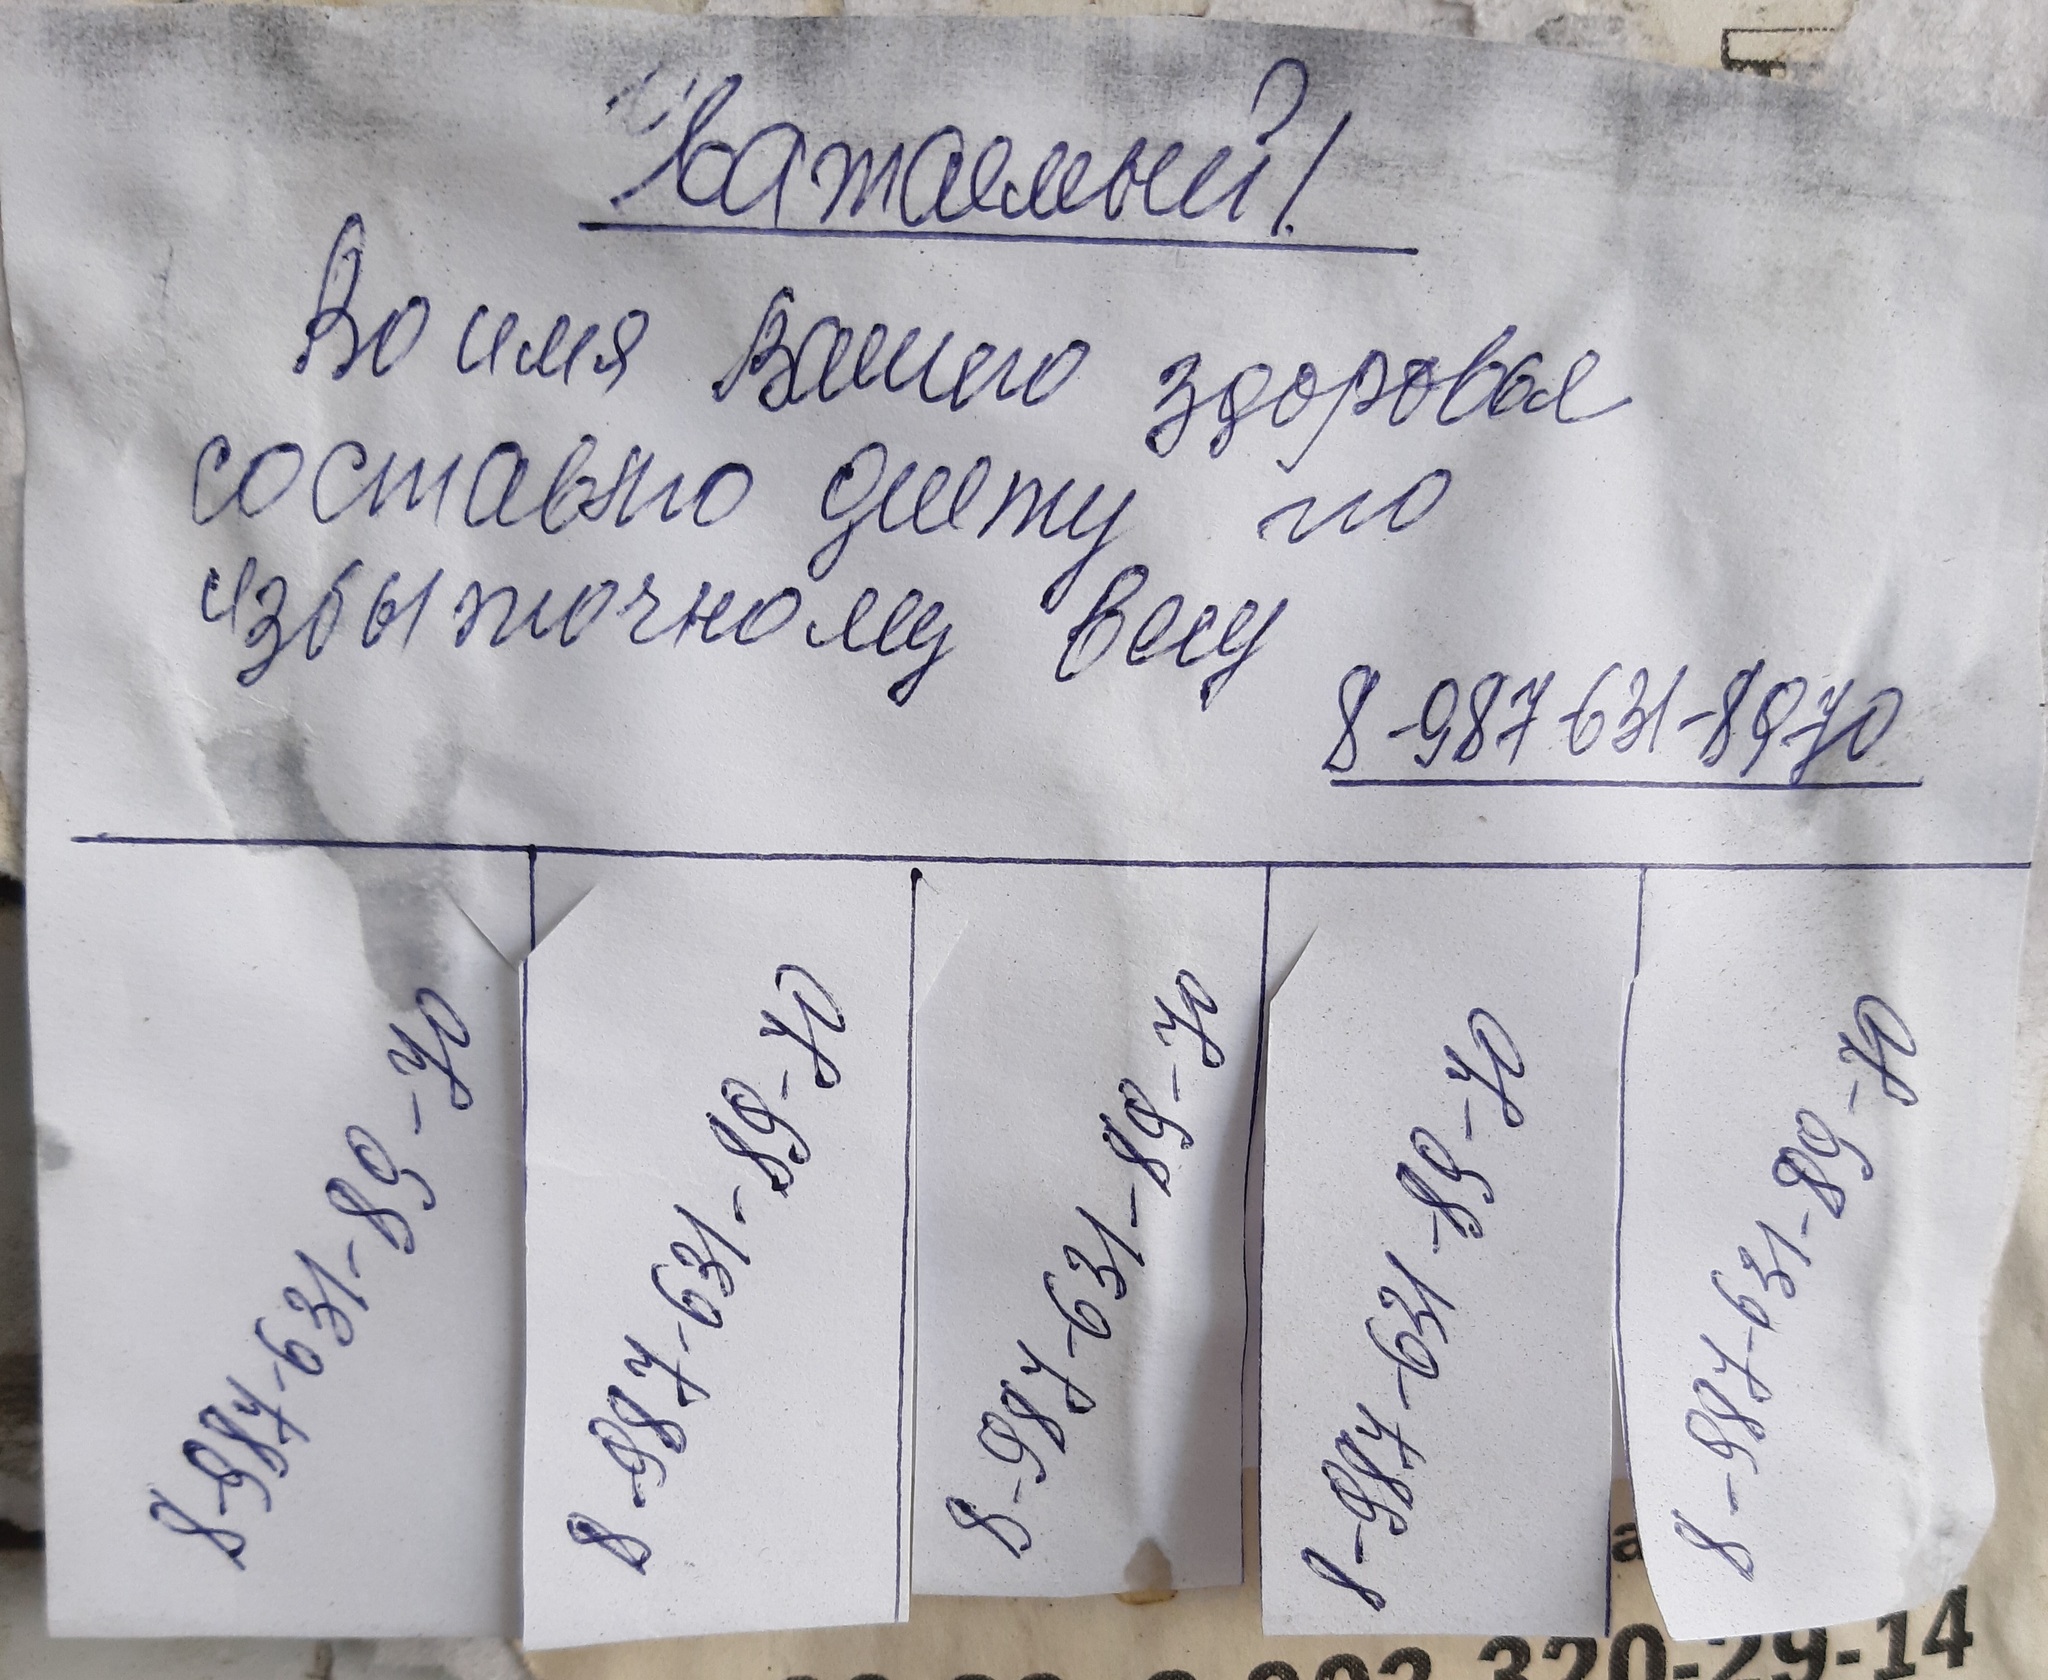 Уважаемый!
Во имя вашего здоровья
составлю диету по
избыточному весу
8-987-631-8970
8-987-631-89-70
8-987-631-89-70
8-987-631-89-70
8-987-631-89-70
8-987-631-89-70
320-29-14